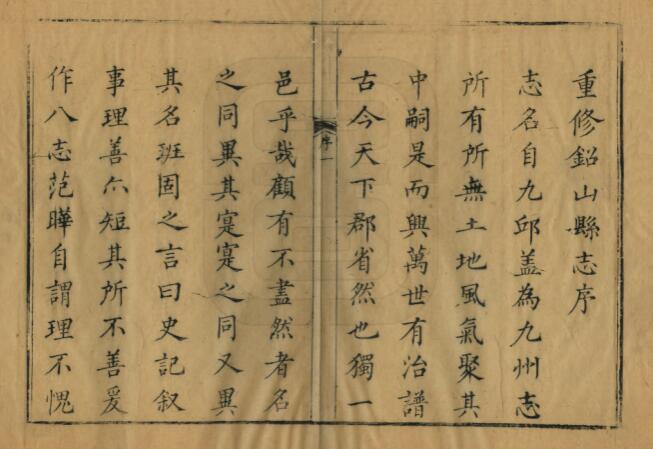 重修鉛山縣志序
志名自九邱蓋為九州志
所有所無土地風氣聚其
中嗣是而興萬世有治譜
古今天下郡省然也獨一
序一
邑乎哉顧有不盡然者名
之同異其寔寔之同又異
其名班固之言曰史記叙
事理善亦短其所不善爰
作八志范曄自謂理不愧